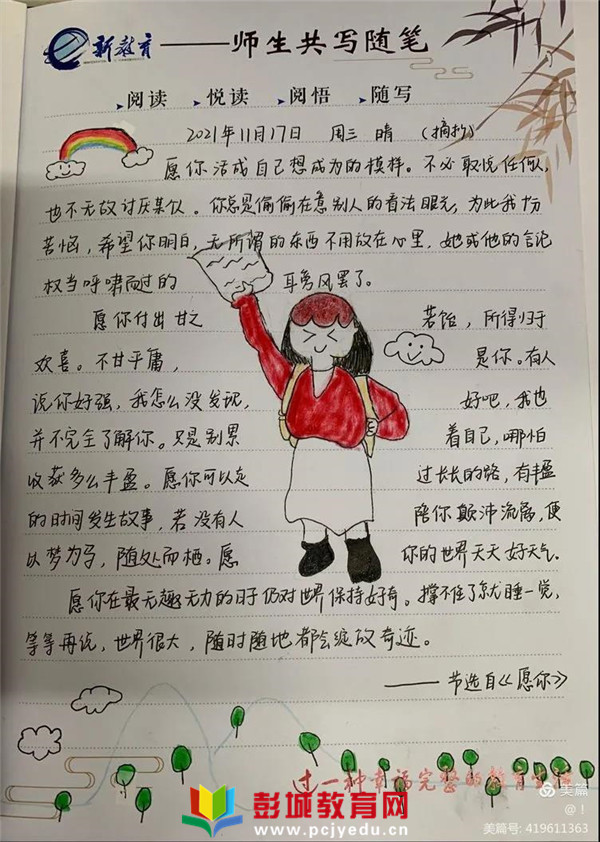 新教育——师生共写随笔
阅读 悦读 阅悟 随写
2021年11月17日 周三 晴 (摘抄)
愿你活成自己想成为的模样。不必取悦任何人,
也不无故讨厌某人。你总是偷偷在意别人的看法眼光,为此我扮
苦恼,希望你明白,无所谓的东西不用放在心里,她或他的言论
权当呼啸而过的 耳旁风罢了。
愿你付出甘之 若饴,所得归于
欢喜。不甘平庸, 是你。有人
说你好强,我怎么没发现, 好吧,我也
并不完全了解你。只是别累 着自己,哪怕
收获多么丰盈。愿你可以走 过长长的路,有丰盈
的时间发生故事,若没有人 陪你颠沛流离,便
以梦为马,随处而栖。愿 你的世界天天好天气。
愿你在最无趣无力的日子仍对世界保持好奇。撑不住了就睡一觉,
等等再说,世界很大,随时随地都会绽放奇迹。
——节选自《愿你》
过一种幸福完整的教育生活
彭城教育网
www.pcjyedu.cn
美篇
@!
美篇号: 419611363